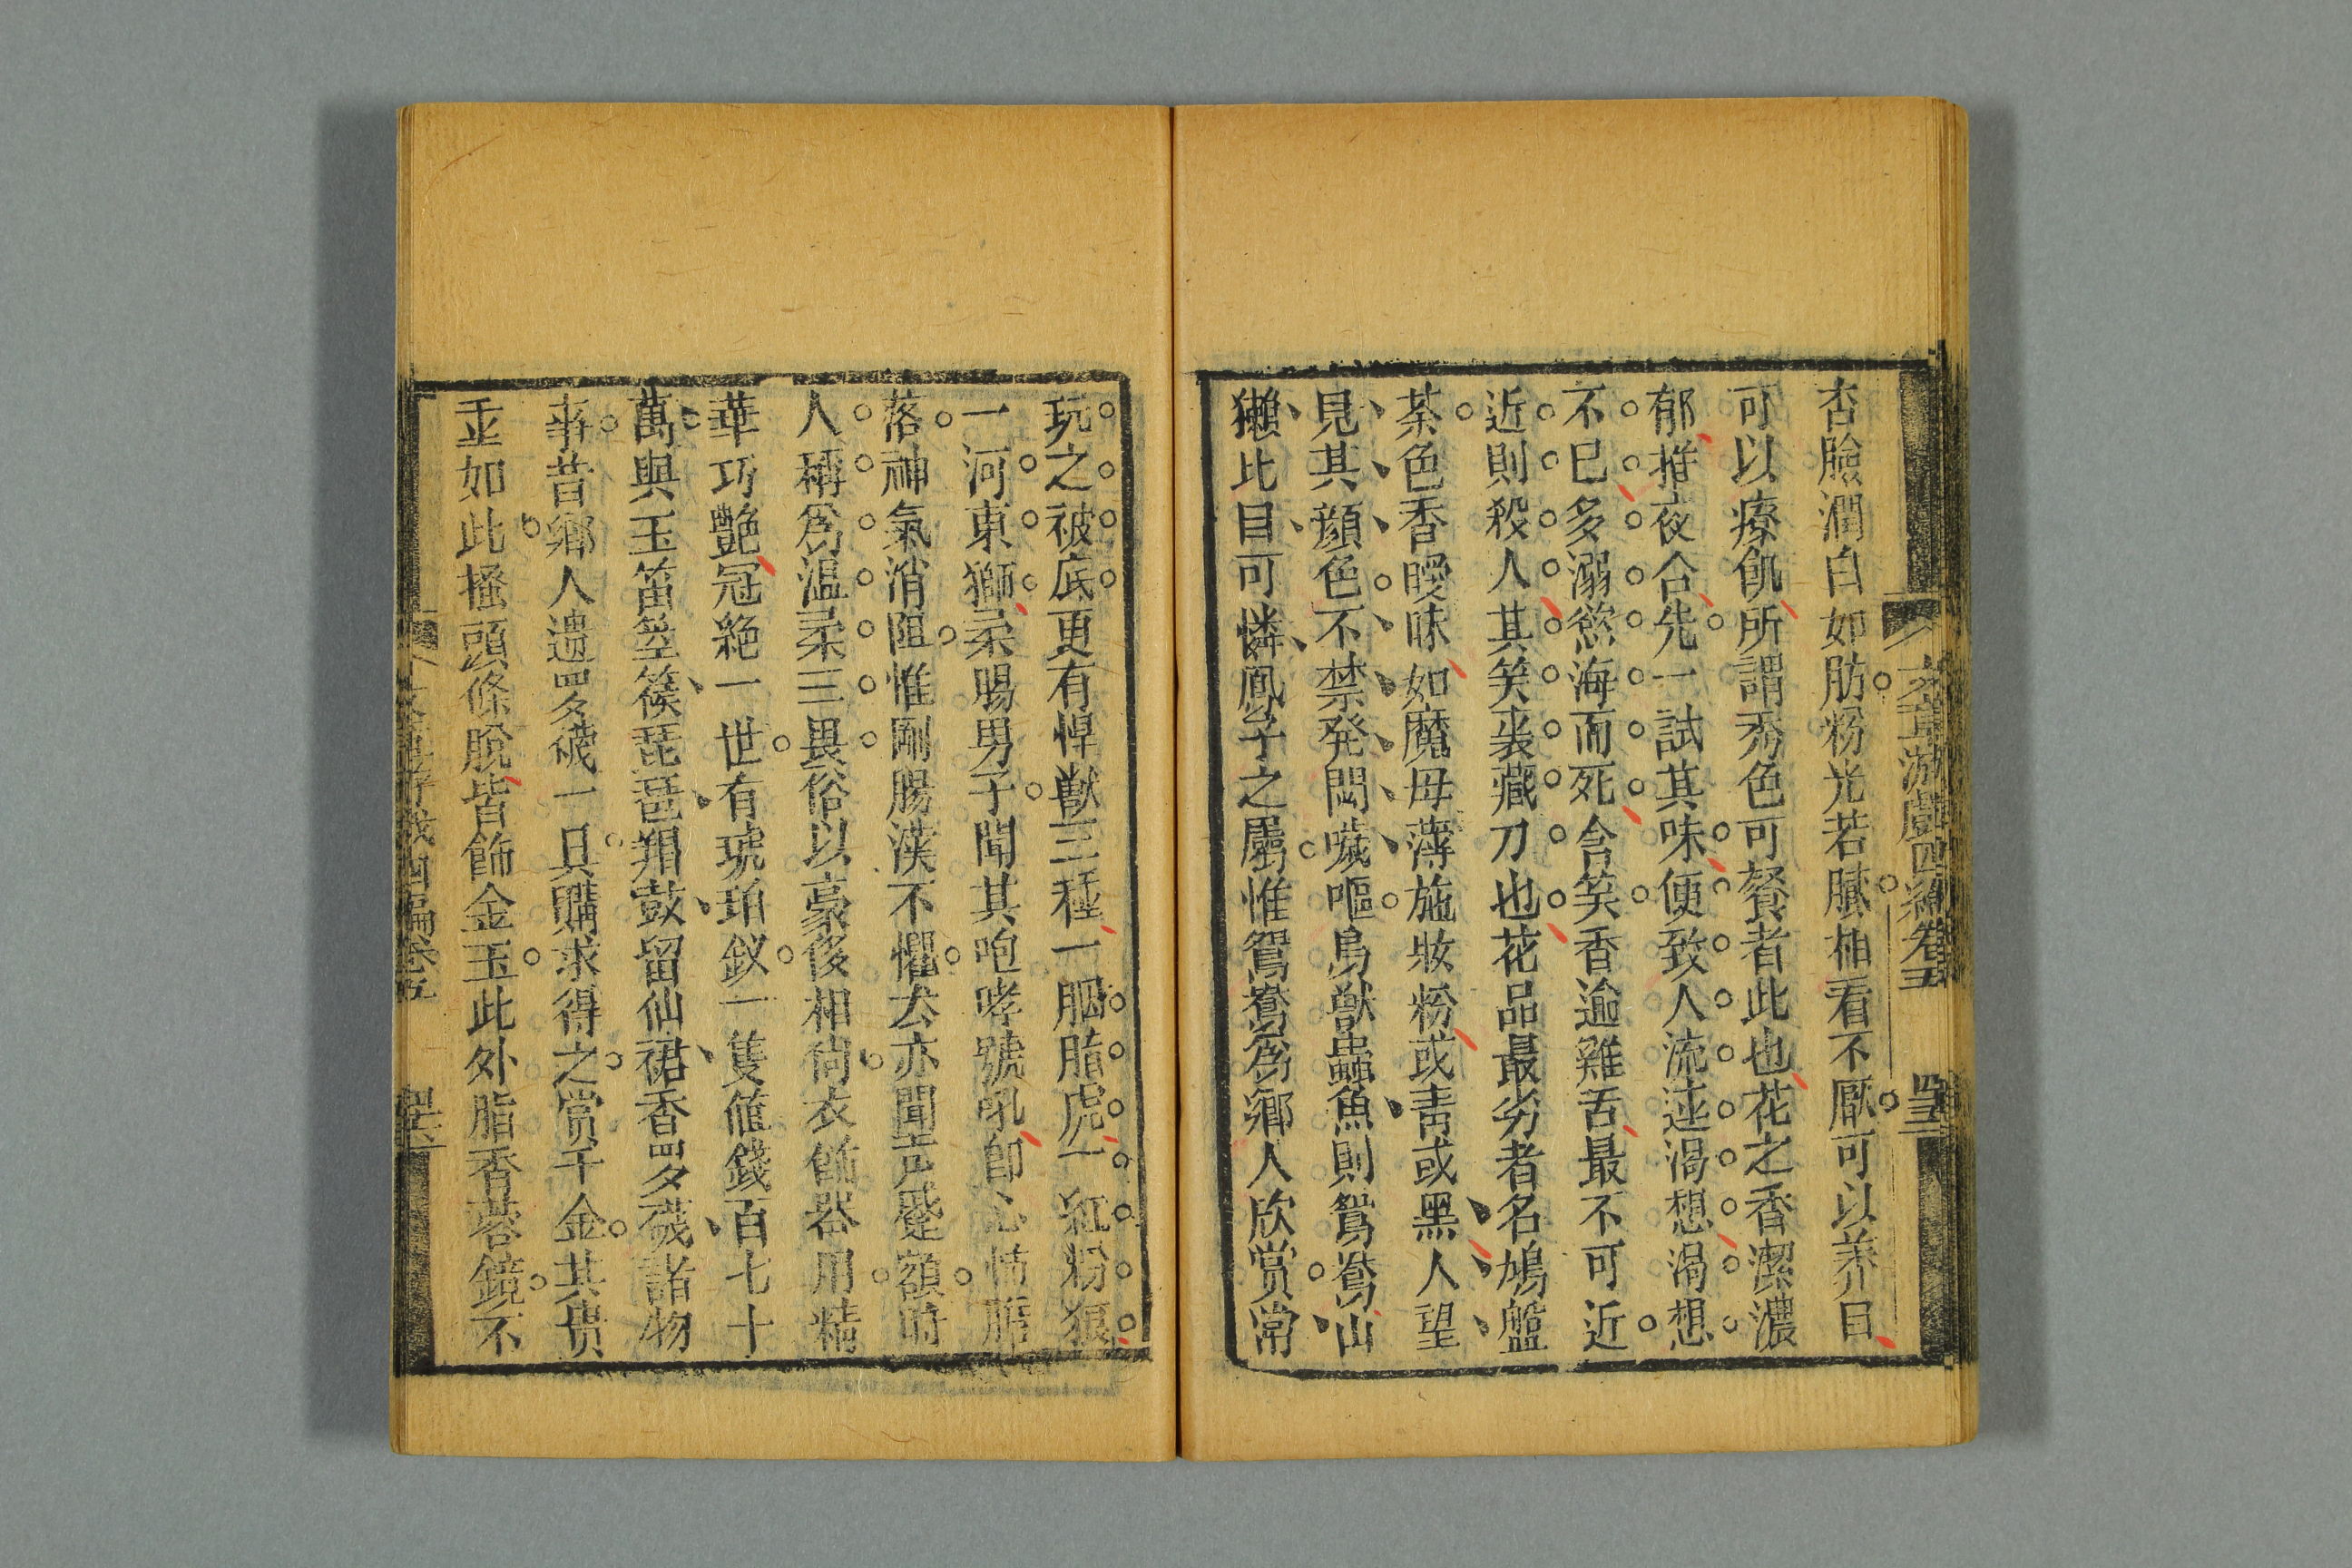 文章游戲四編卷五
杏臉潤白如肪粉光若膩相看不厭可以养目
可以療飢所謂秀色可餐者此也花之香潔濃
郁推夜合先一試其味便致人流涎渴想渴想
不已多溺慾海而死含笑香逾雞舌最不可近
近則殺人其笑裏藏刀也花品最劣者名鳩盤
荼色香曖昧如魔母薄施妝粉或青或黑人望
見其顔色不禁発悶噦嘔鳥獸蟲魚則鴛鴦山
獺比目可憐鳳子之屬惟鴛鴦爲鄉人欣赏常
玩之被底更有悍獸三種一胭脂虎一紅粉狼
一河東獅柔腸男子聞其咆哮號吼卽心怖膽
落神氣消阻惟剛腸漢不懼去亦聞声蹙額時
人稱爲温柔三畏俗以豪侈相尙衣飾器用精
華巧艷冠絶一世有琥珀釵一隻値錢百七十
萬與玉笛箜篌琵琶羯鼓留仙裙香羅襪諸物
事昔鄉人遺羅襪一具購求得之赏千金其貴
重如此搔頭條脫皆飾金玉此外脂香蓉鏡不
文章游戲四編卷五